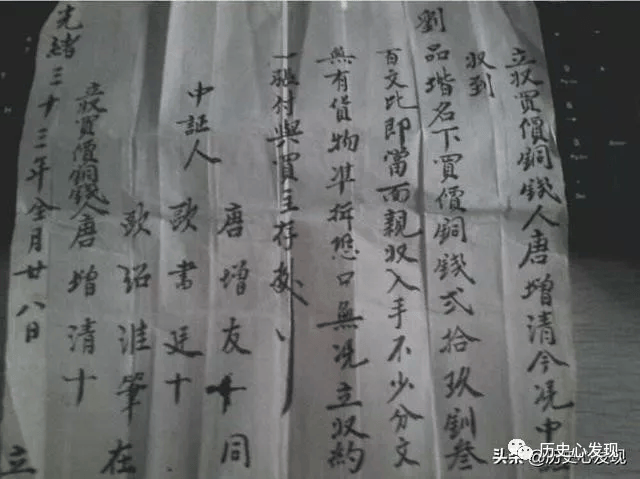 立收買價銅錢人唐增清今凴中
收到
劉品堦名下買價銅錢弍拾玖釧叁
百文比即當面親收入手不少分文
無有貨物準拆恐口無凴立收約
一張付與買主存
唐增友十同
中証人歐書廷十
歐紹淮筆在
立收買價銅錢人唐增清十
光緒三十三年全月廿八日立
头条@历史心发现
历史心发现